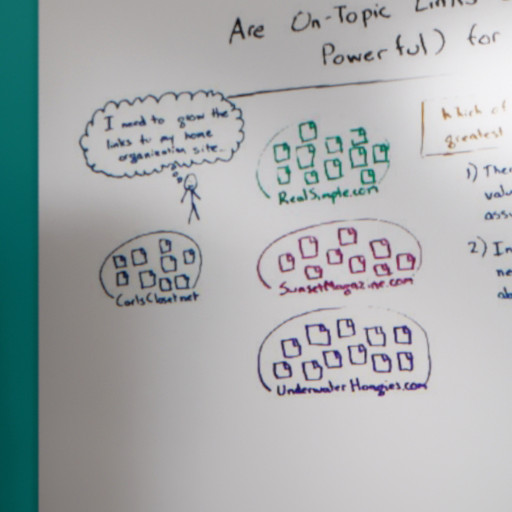 Are On-Topic Links
Powerful) for
I need to grow the
links to my home
organization site...
RealSimple.com
SunsetMagazine.com
CarlsCloset.net
UnderwaterHoagies.com
Which of
greatest
1) Ther
valu
assu
2) In
ne
ab